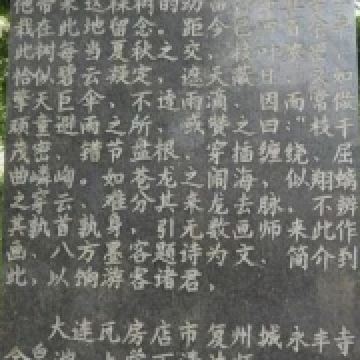 他带来这棵树的幼苗
栽在此地留念。距今已
此树每当夏秋之交，枝叶
恰似碧云凝定，遮天蔽日，又如
擎天巨伞，不透雨滴、因而常做
顽童避雨之所、或赞之曰："枝干
茂密、错节盘根、穿插缠绕、屈
曲嶙峋。如苍龙之闹海，似翔螭
之穿云、难分其来龙去脉，不辨
其孰首孰身，引无数画师来此作
画、八方墨客题诗为文、简介到
此，以饷游客诸君，
大连瓦房店市复州城永丰寺